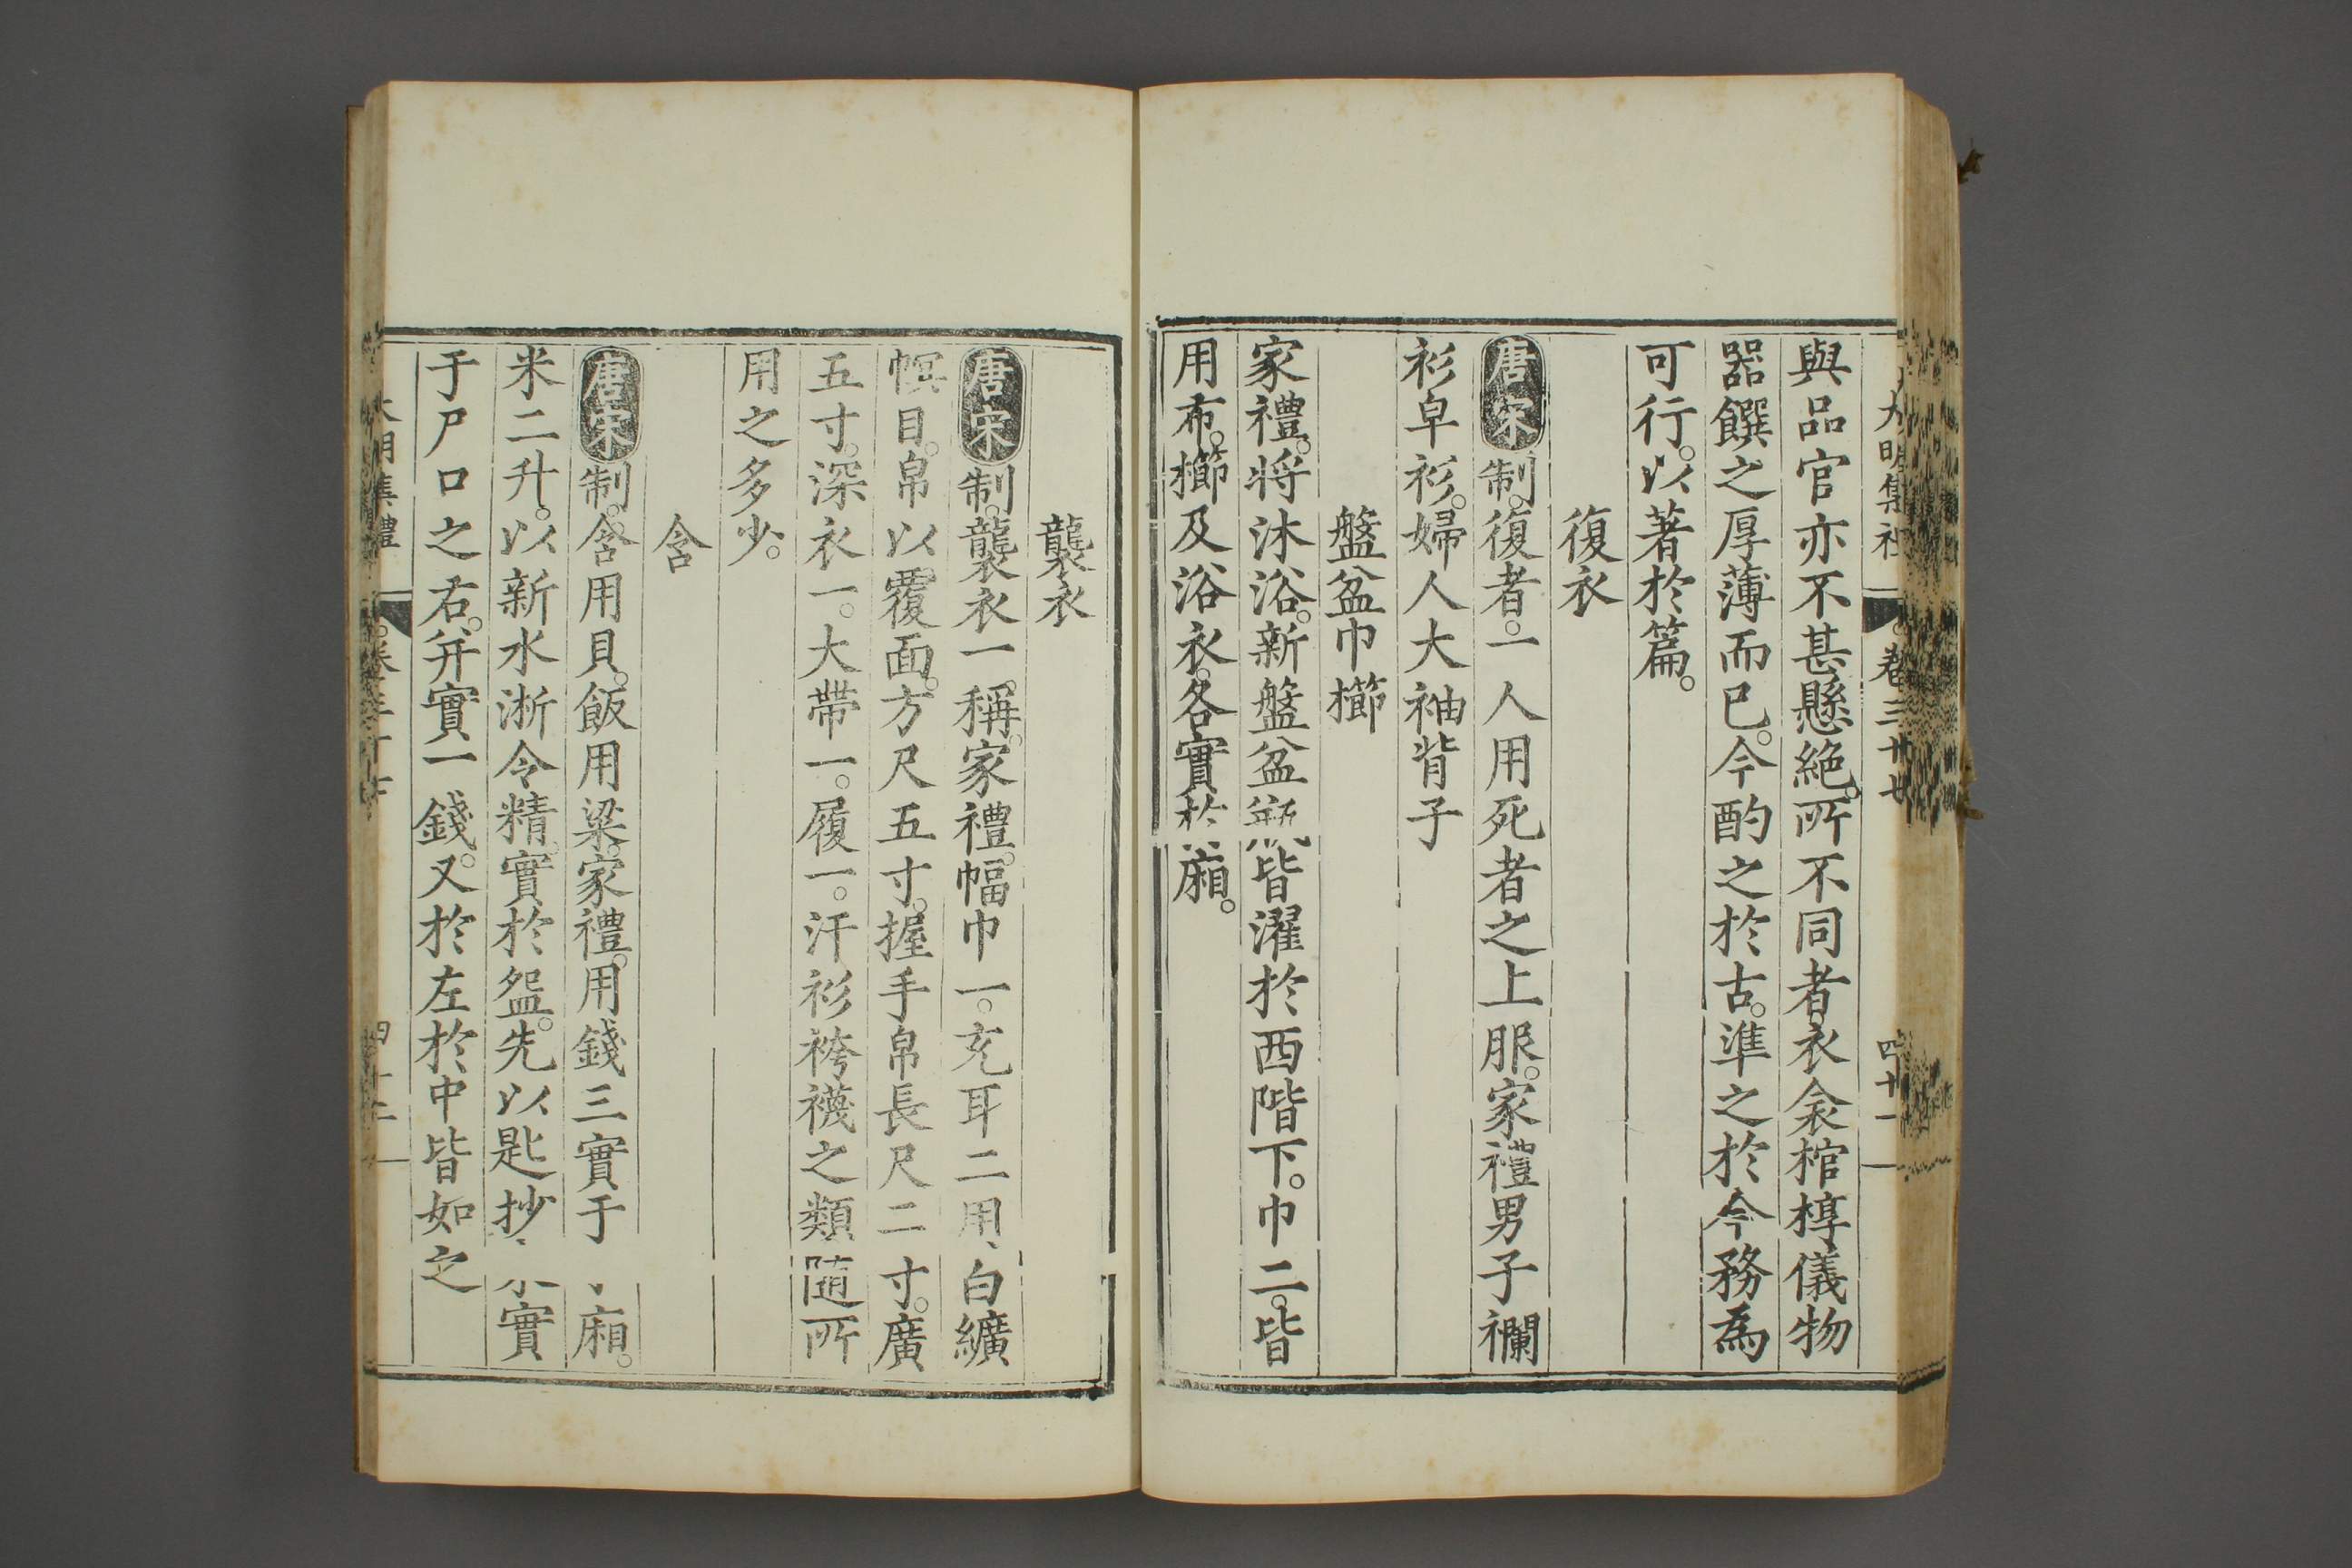 與品官亦不甚懸絶。所不同者。衣衾棺椁儀物
器饌之厚薄而已。今酌之於古。準之於今務為
可行。以著於篇。
復衣
唐宋制。復者。一人用死者之上服。家禮男子襴
衫皁衫。婦人大袖背子
盤盆巾櫛
家禮。將沐浴。新盤盆皆濯於西階下。巾二。皆
用布。櫛及浴衣。各實於廂。
襲衣
唐宋制。襲衣一。稱。家禮。幅巾一。充耳二用白纊
幎目。帛以覆面。方尺五寸。握手帛長尺二寸。廣
五寸。深衣一。大帶一。履一。汗衫袴襪之類隨所
用之多少。
含
唐宋制。含用貝。飯用粱。家禮。用錢三實于廂。
米二升。以新水淅令精。實於盌。先以匙抄實
于尸口之右。并實一錢。又於左於中皆如之
大明集禮
卷三十七
四十一